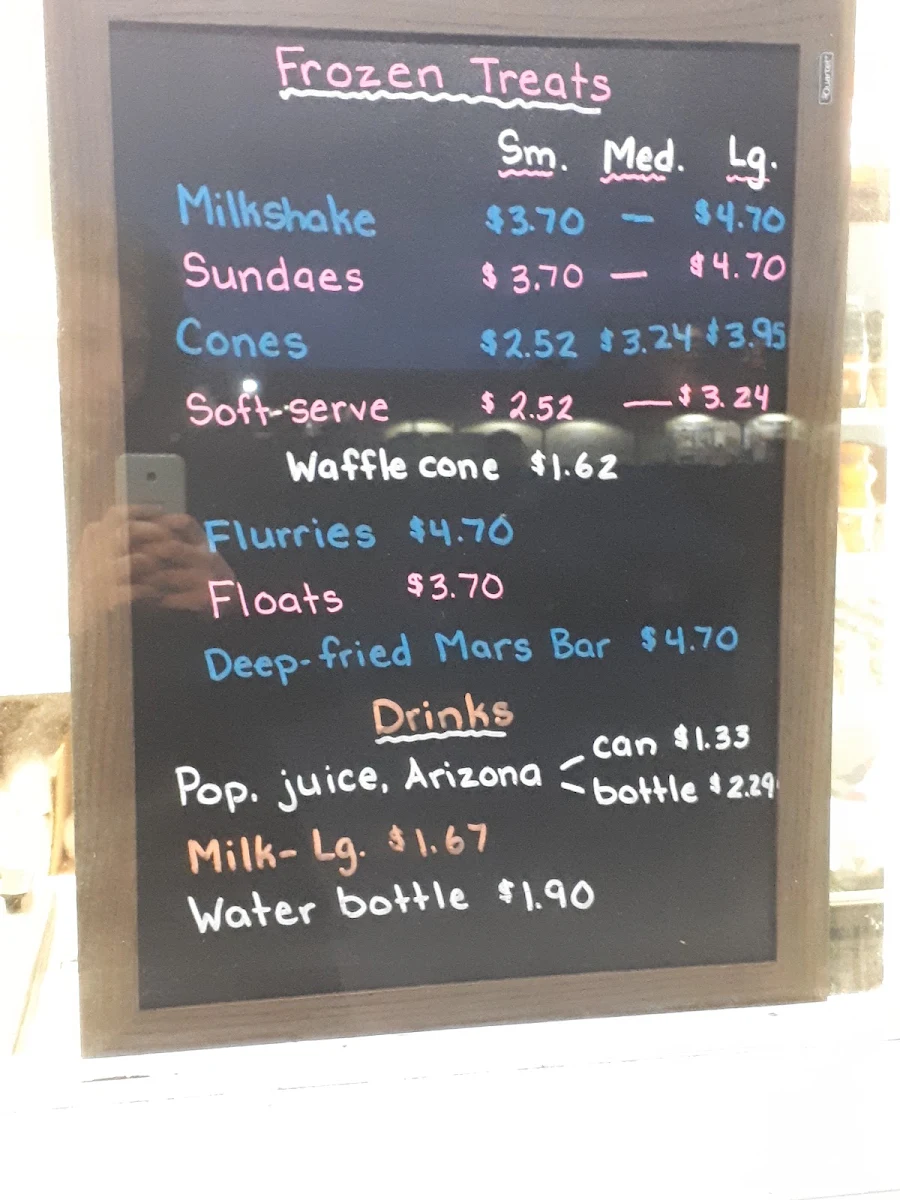 Frozen Treats
Sm. Med. Lg.
Milkshake $3.70 — $4.70
Sundaes $3.70 — $4.70
Cones $2.52 $3.24 $3.95
Soft-serve $2.52 — $3.24
Waffle cone $1.62
Flurries $4.70
Floats $3.70
Deep-fried Mars Bar $4.70
Drinks
can $1.33
Pop, juice, Arizona
bottle $2.29
Milk- Lg. $1.67
Water bottle $1.90
Quartet